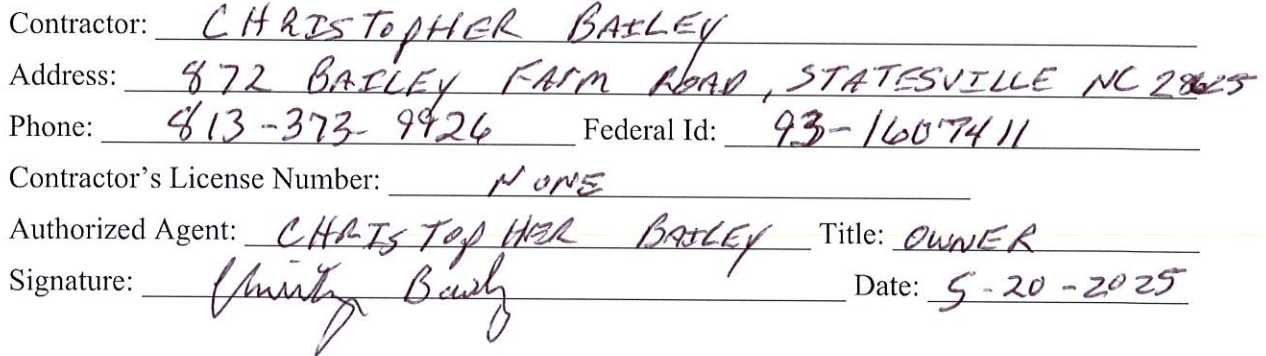 Contractor: CHRISTOPHER BAILEY
Address: 872 BAILEY FARM ROAD, STATESVILLE NC 28625
Phone: 813-373-9926 Federal Id: 93-1607411
Contractor's License Number: NONE
Authorized Agent: CHRISTOPHER BAILEY Title: OWNER
Signature: Date: 5-20-2025